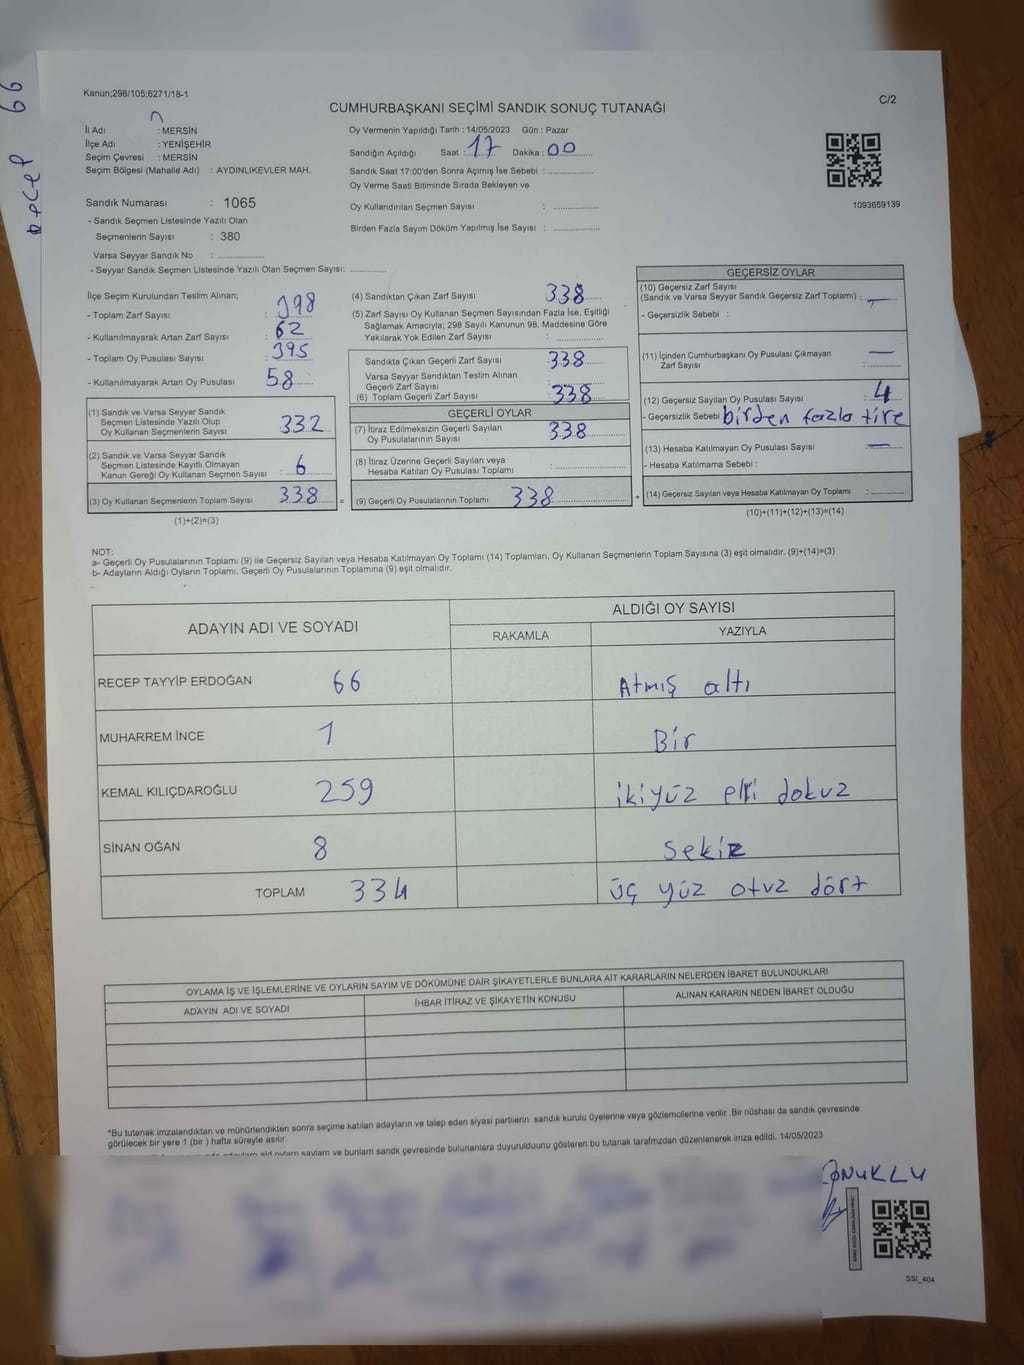 Recep 66
Kanun;298/105;6271/18-1
CUMHURBAŞKANI SEÇİMİ SANDIK SONUÇ TUTANAĞI
C/2
İl Adı : MERSİN
İlçe Adı : YENİŞEHİR
Seçim Çevresi : MERSİN
Seçim Bölgesi (Mahalle Adı) : AYDINLIKEVLER MAH.
Sandık Numarası : 1065
- Sandık Seçmen Listesinde Yazılı Olan
Seçmenlerin Sayısı : 380
Varsa Seyyar Sandık No : ..................
- Seyyar Sandık Seçmen Listesinde Yazılı Olan Seçmen Sayısı: ............
Oy Vermenin Yapıldığı Tarih : 14/05/2023 Gün : Pazar
Sandığın Açıldığı Saat : 17 Dakika : 00
Sandık Saat 17:00'den Sonra Açımış İse Sebebi : ..............
Oy Verme Saati Bitiminde Sırada Bekleyen ve
Oy Kullandırılan Seçmen Sayısı : ..............
Birden Fazla Sayım Döküm Yapılmış İse Sayısı : ..............
1093659139
İlçe Seçim Kurulundan Teslim Alınan;
- Toplam Zarf Sayısı : 398
- Kullanılmayarak Artan Zarf Sayısı : 62
- Toplam Oy Pusulası Sayısı : 395
- Kullanılmayarak Artan Oy Pusulası : 58
(1) Sandık ve Varsa Seyyar Sandık
Seçmen Listesinde Yazılı Olup
Oy Kullanan Seçmenlerin Sayısı : 332
(2) Sandık ve Varsa Seyyar Sandık
Seçmen Listesinde Kayıtlı Olmayan
Kanun Gereği Oy Kullanan Seçmen Sayısı : 6
(3) Oy Kullanan Seçmenlerin Toplam Sayısı : 338 =
(1)+(2)=(3)
(4) Sandıktan Çıkan Zarf Sayısı : 338
(5) Zarf Sayısı Oy Kullanan Seçmen Sayısından Fazla İse, Eşitliği
Sağlamak Amacıyla; 298 Sayılı Kanunun 98. Maddesine Göre
Yakılarak Yok Edilen Zarf Sayısı : ..............
Sandıkta Çıkan Geçerli Zarf Sayısı : 338
Varsa Seyyar Sandıktan Teslim Alınan
Geçerli Zarf Sayısı : ..............
(6) Toplam Geçerli Zarf Sayısı : 338
GEÇERLİ OYLAR
(7) İtiraz Edilmeksizin Geçerli Sayılan
Oy Pusulalarının Sayısı : 338
(8) İtiraz Üzerine Geçerli Sayılan veya
Hesaba Katılan Oy Pusulası Toplamı : ..............
(9) Geçerli Oy Pusulalarının Toplamı : 338 +
GEÇERSİZ OYLAR
(10) Geçersiz Zarf Sayısı
(Sandık ve Varsa Seyyar Sandık Geçersiz Zarf Toplamı) : —
- Geçersizlik Sebebi :
(11) İçinden Cumhurbaşkanı Oy Pusulası Çıkmayan
Zarf Sayısı : —
(12) Geçersiz Sayılan Oy Pusulası Sayısı : 4
- Geçersizlik Sebebi : birden fazla tire
(13) Hesaba Katılmayan Oy Pusulası Sayısı : —
- Hesaba Katılmama Sebebi :
(14) Geçersiz Sayılan veya Hesaba Katılmayan Oy Toplamı : ..........
(10)+(11)+(12)+(13)=(14)
NOT:
a- Geçerli Oy Pusulalarının Toplamı (9) ile Geçersiz Sayılan veya Hesaba Katılmayan Oy Toplamı (14) Toplamları, Oy Kullanan Seçmenlerin Toplam Sayısına (3) eşit olmalıdır. (9)+(14)=(3)
b- Adayların Aldığı Oyların Toplamı, Geçerli Oy Pusulalarının Toplamına (9) eşit olmalıdır.
ADAYIN ADI VE SOYADI
ALDIĞI OY SAYISI
RAKAMLA YAZIYLA
RECEP TAYYİP ERDOĞAN 66 Atmış altı
MUHARREM İNCE 1 Bir
KEMAL KILIÇDAROĞLU 259 ikiyüz elli dokuz
SİNAN OĞAN 8 Sekiz
TOPLAM 334 üç yüz otuz dört
OYLAMA İŞ VE İŞLEMLERİNE VE OYLARIN SAYIM VE DÖKÜMÜNE DAİR ŞİKAYETLERLE BUNLARA AİT KARARLARIN NELERDEN İBARET BULUNDUKLARI
ADAYIN ADI VE SOYADI İHBAR İTİRAZ VE ŞİKAYETİN KONUSU ALINAN KARARIN NEDEN İBARET OLDUĞU
*Bu tutanak imzalandıktan ve mühürlendikten sonra seçime katılan adayların ve talep eden siyasi partilerin sandık kurulu üyelerine veya gözlemcilerine verilir .Bir nüshası da sandık çevresinde
görülecek bir yere 1 (bir ) hafta süreyle asılır.
ve bunların sandk çevresinde bulunanlara duyurulduunu gösteren bu tutanak tarafmzdan düzenlenerek imza edildi. 14/05/2023
SSİ_404